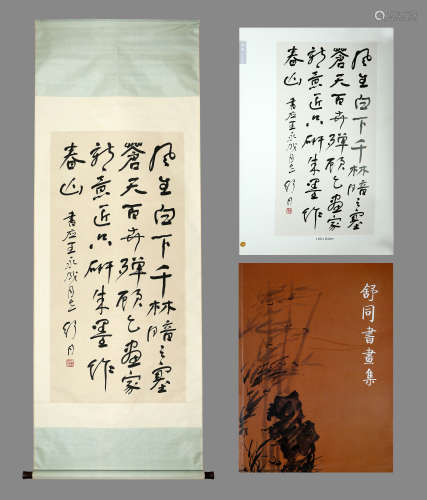 風生白下千林暗塞
蒼天百卉殫願乞畫家
新意匠只研朱墨作
春山 書應王永成同志 舒同
風生白下千林暗塞
蒼天百卉殫願乞畫家
新意匠只研朱墨作
春山 書應王永成同志 舒同
舒同書畫集